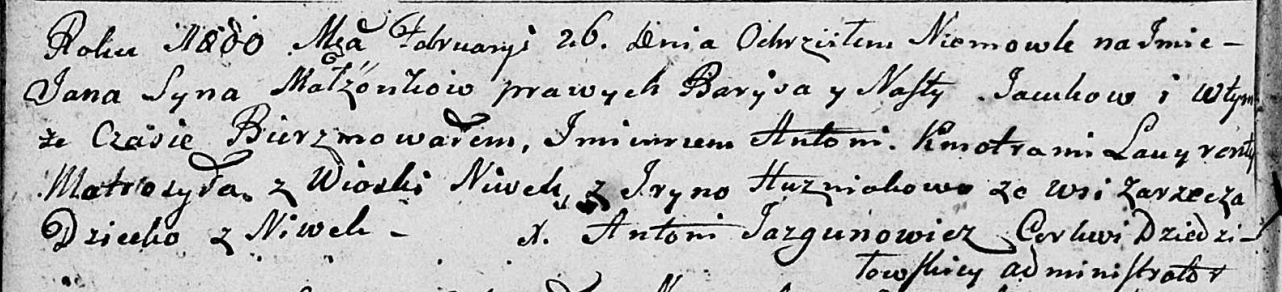 Roku 1800 Mca Februaryi 26. Dnia Ochrzciłem Niemowle na Imie –
Jana Syna Małżonkow prawych Barysa y Nasty Jackow i wtym
że Czasie Bierzmowałem, Imieniem Antoni. Kmotrami Lawrenty
Matrosyła z Wioski Niwek, z Iryno Huzniakowo ze wsi Zarzecza
Dziecko z Niwek – x. Antoni Jazgunowicz Cerkwi Dziedzi–
łowskiey administrator